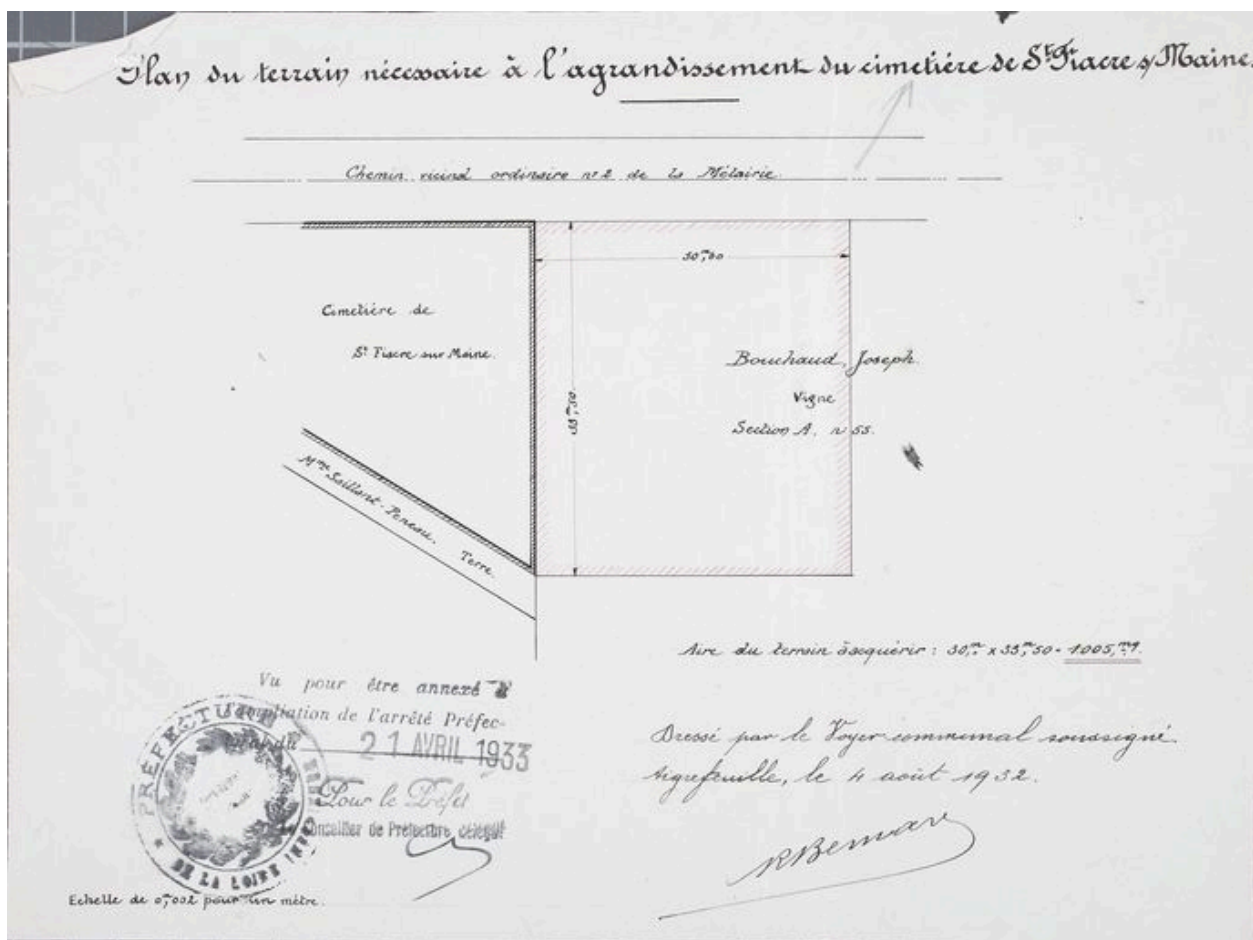 Plan du terrain nécessaire à l'agrandissement du cimetière de St Fiacre s/ Maine.
Chemin vicinal ordinaire n° 2 de la Métairie.
30,m00
Cimetière de
St Fiacre sur Maine.
Bouchaud, Joseph.
Vigne
Section A, n° 55.
33,m50.
Mme Saillant-Peneau. Terre.
Aire du terrain à acquérir : 30,m x 33,m50 = 1005,mq.
Vu pour être annexé à
l'ampliation de l'arrêté Préfec-
du 21 AVRIL 1933
Pour le Préfet
Le Conseiller de Préfecture délégué
PRÉFECTURE
DE LA LOIRE INF
Dressé par le Voyer communal soussigné.
Aigrefeuille, le 4 août 1932.
Echelle de 0,m002 pour un mètre.